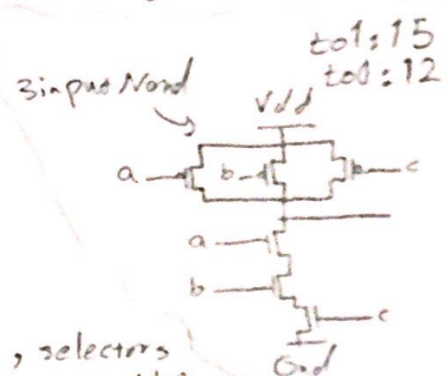 to1:15
to0:12
3input Nand
Vdd
a
b
c
a
b
c
Gnd
, selectors